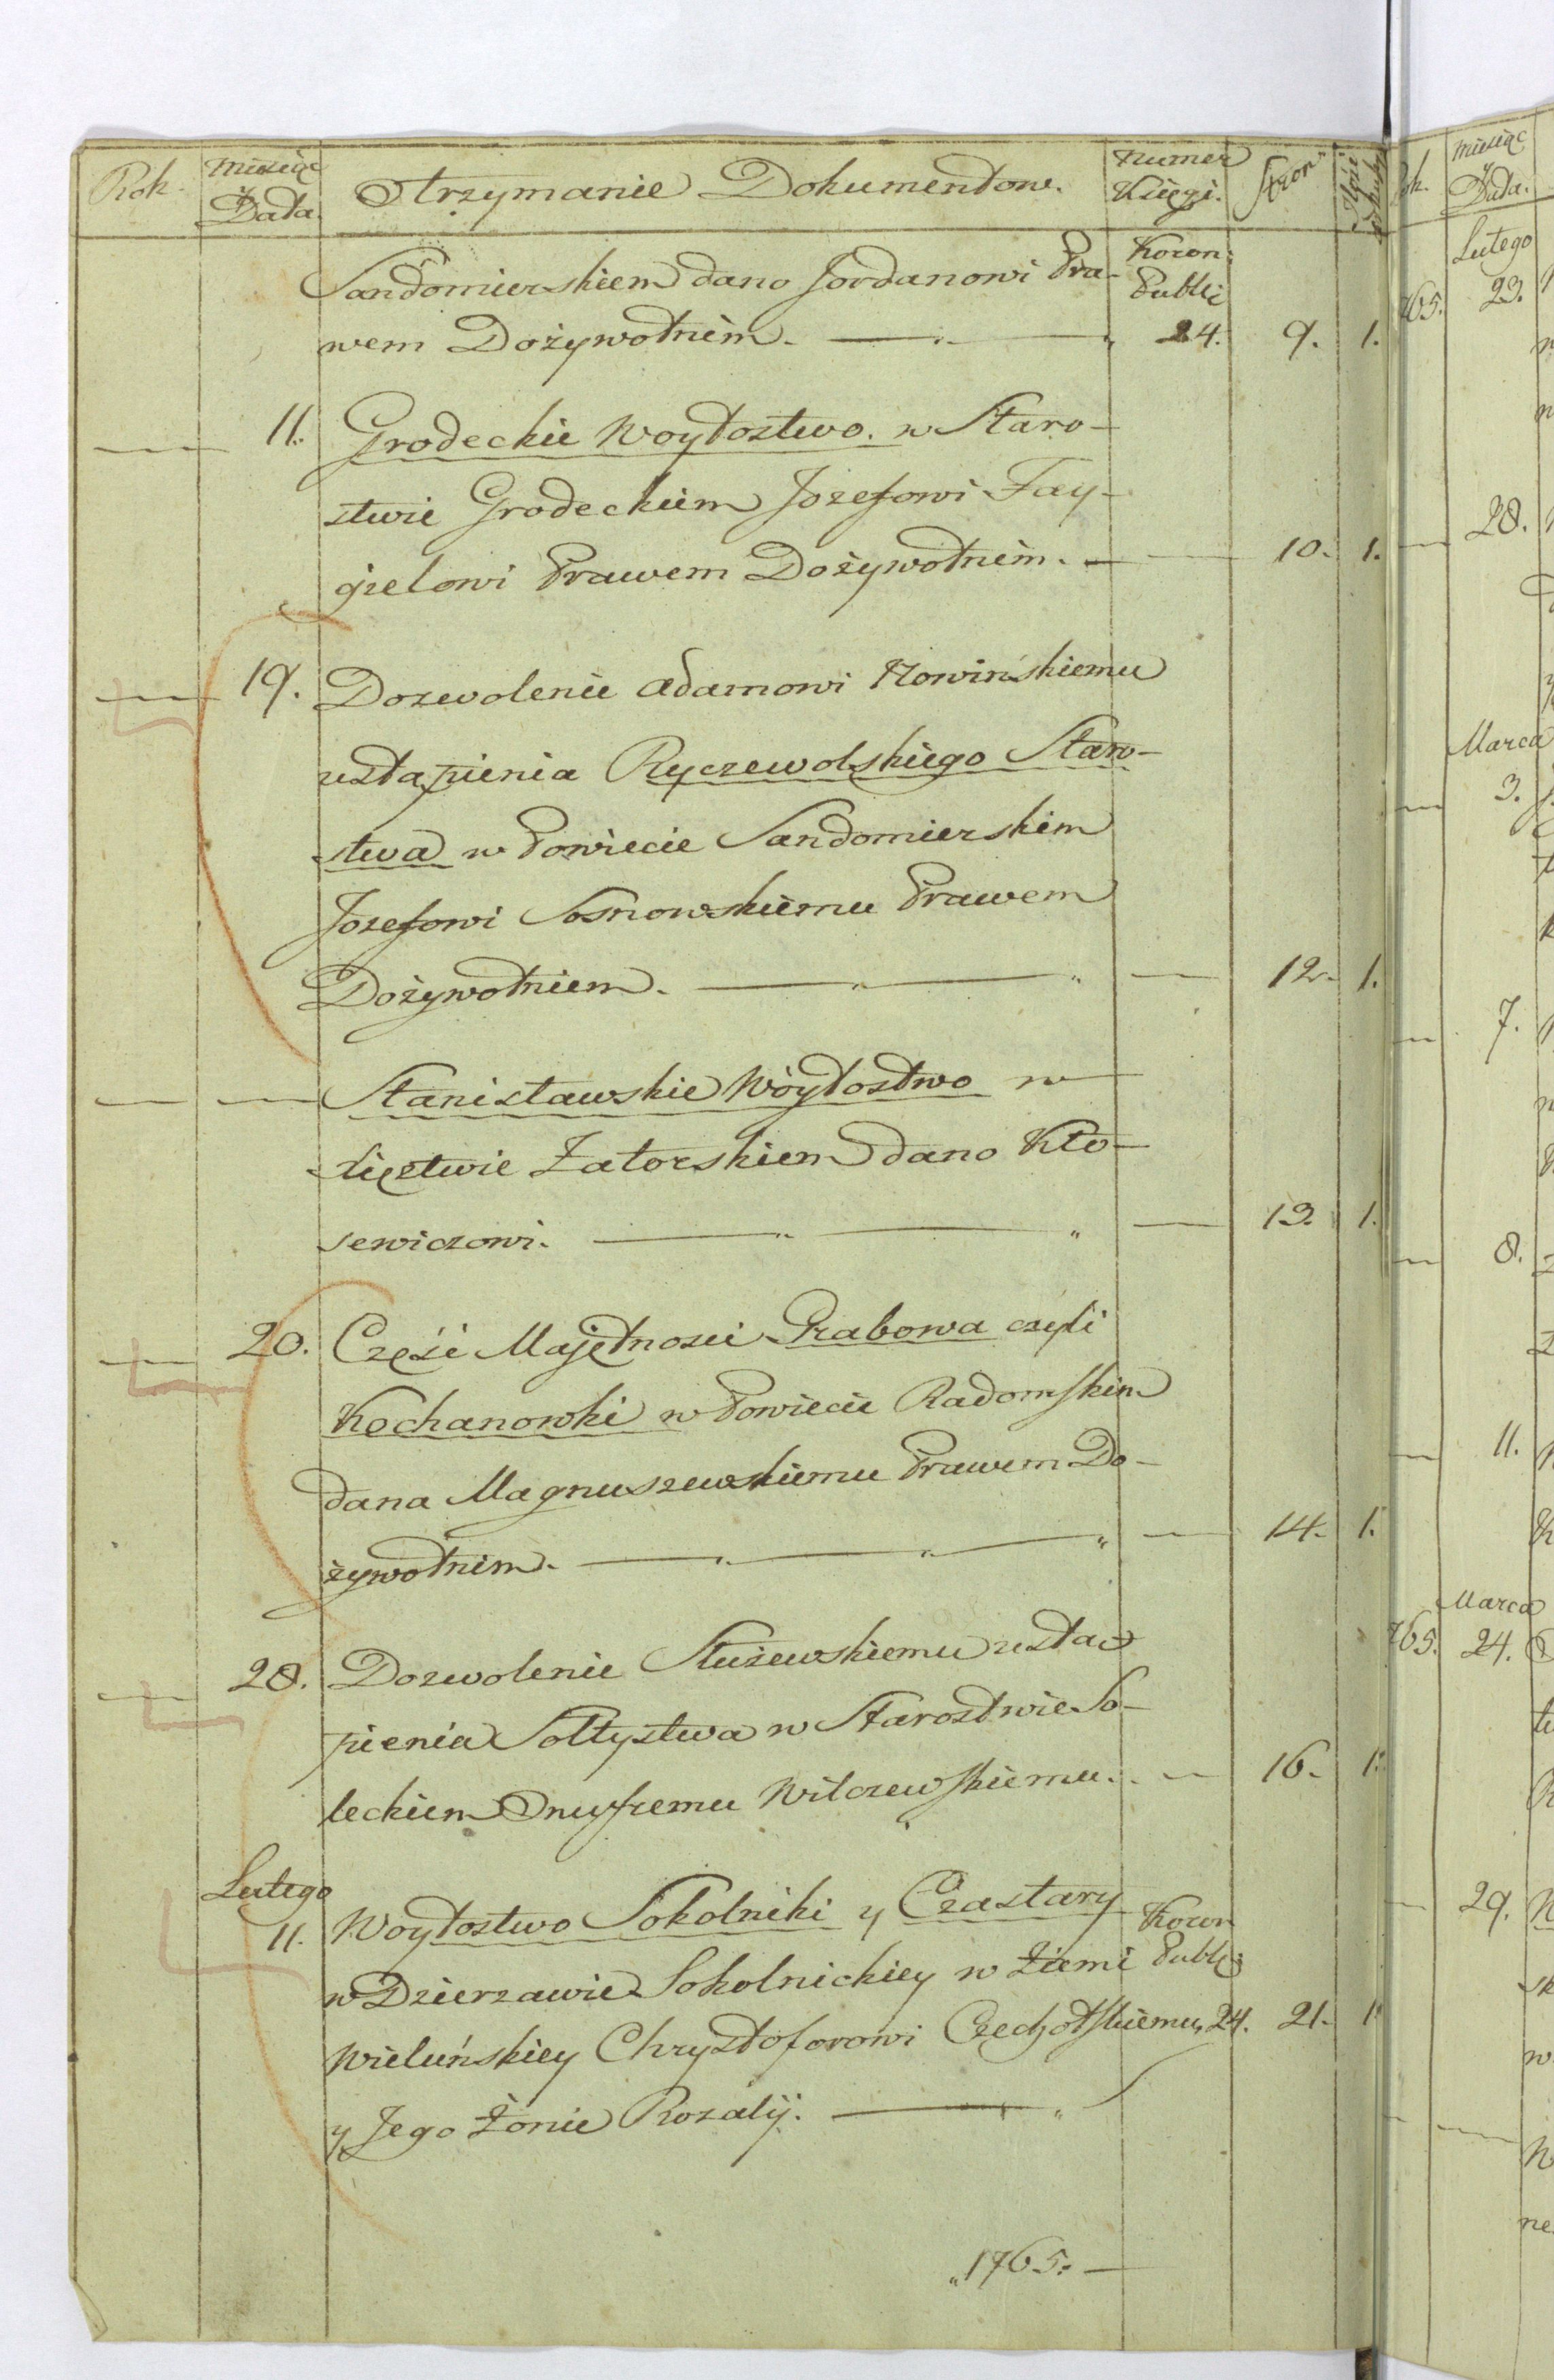 Rok. Miesiąc y Data. Otrzymanie Dokumentow. Numer Księgi. Stron
Sandomierskiem dano Jordanowi Pra- Koron: Publi:
wem Dożywotnim. 24. 9. 1.
11. Grodeckie Woytostwo. w Staro-
stwie Grodeckiem Jozefowi Fay-
gielowi Prawem Dożywotnim. 10. 1.
19. Dozwolenie Adamowi Nowinskiemu
ustąpienia Ryczewolskiego Staro-
stwa w Powiecie Sandomierskim
Jozefowi Sosnowskiemu Prawem
Dożywotniem. 12. 1.
Stanisławskie Wóytostwo w
Xięstwie Zatorskiem dano Kło-
sewiczowi. 13. 1.
20. Część Majętnosci Grabowa czyli
Kochanowki w Powiecie Radomskim
dana Magnuszewskiemu Prawem Do-
żywotnim. 14. 1.
28. Dozwolenie Służewskiemu ustą-
pienia Sołtystwa w Starostwie So-
leckiem Onufremu Wilczewskiemu. 16. 1.
Lutego
11. Woytostwo Sokolniki y Czastary Koron
w Dzierzawie Sokolnickiey w Ziemi Publi:
Wieluńskiey Chrysztoforowi Czechotskiemu, 24. 21. 1.
y Jego Żonie Rozalij.
1765.
Miesiąc
Data.
Lutego
765. 23.
28.
Marca
3.
7.
8.
11.
Marca
765. 24.
29.